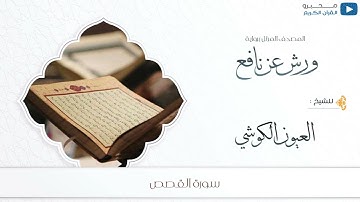 مجبرو
القرآن الكريم
المصحف المرتل برواية
ورش عن نافع
للشيخ :
العيون الكوشي
سورة القصص